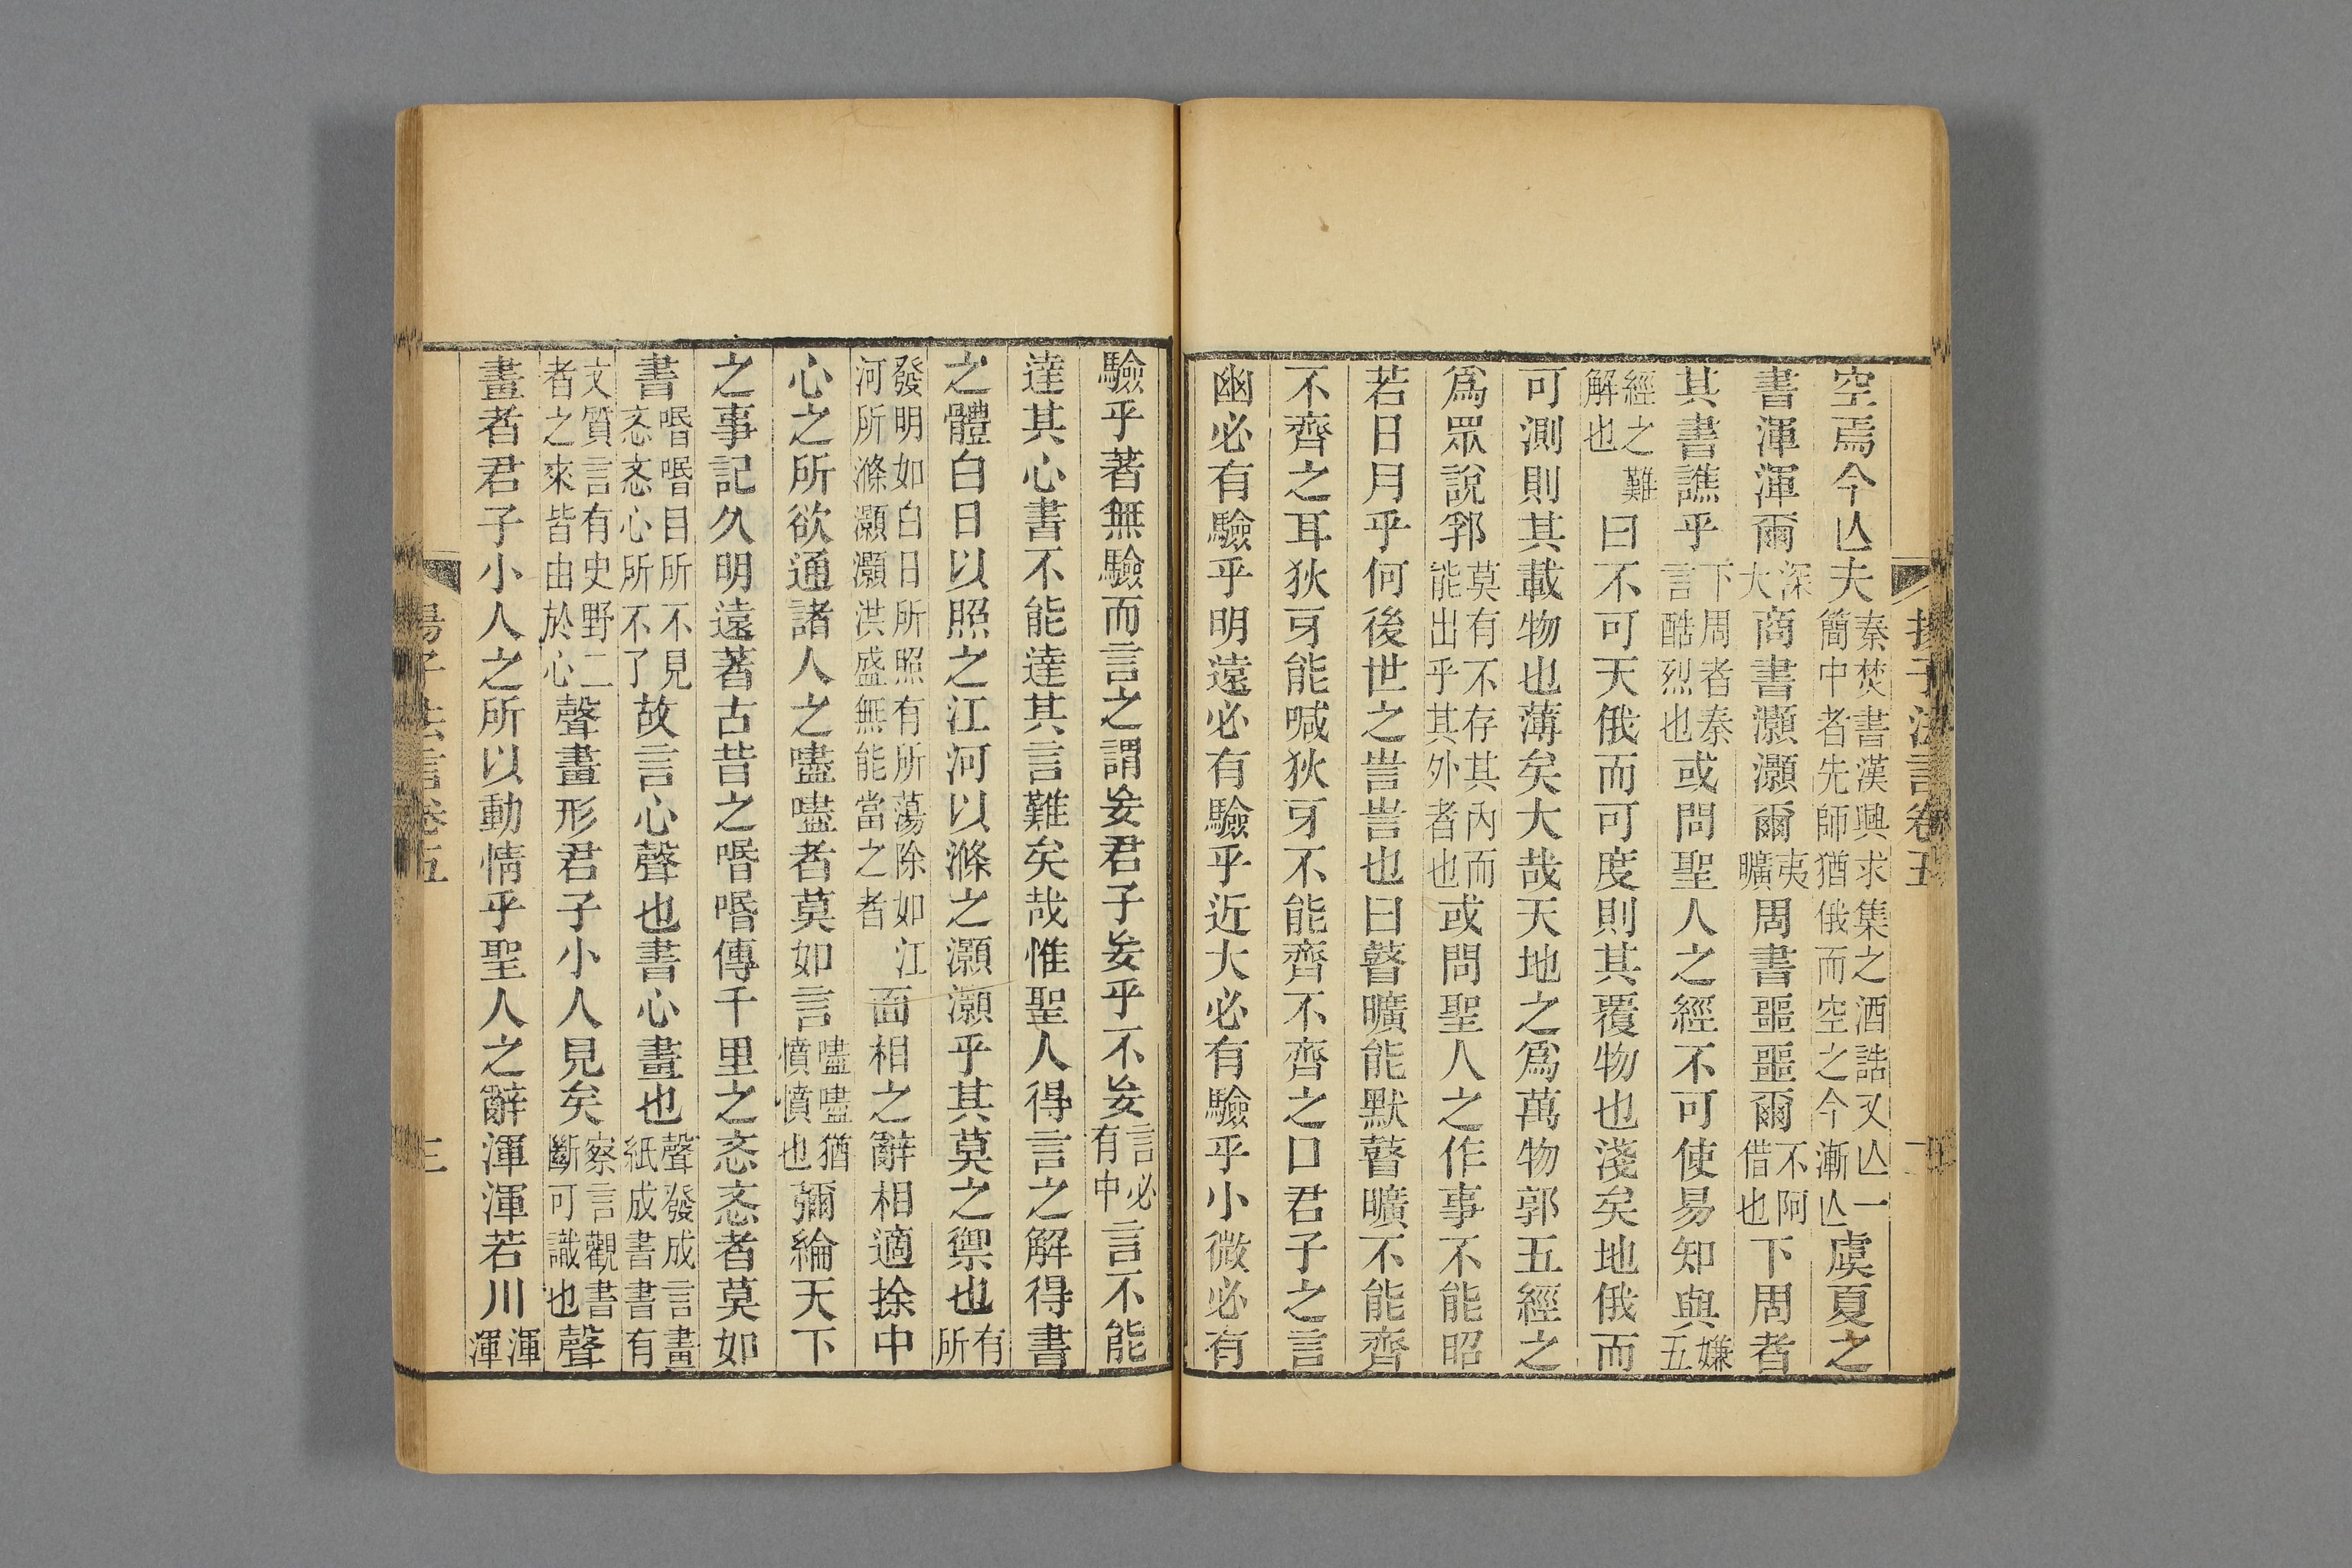 空焉今亾夫秦焚書漢興求集之酒誥又亾一簡中者先師猶俄而空之今漸亾虞夏之
書渾渾爾深大商書灝灝爾夷曠周書噩噩爾不阿借也下周者
其書譙乎下周者秦言酷烈也或問聖人之經不可使易知與嫌五
經之難解也曰不可天俄而可度則其覆物也淺矣地俄而
可測則其載物也薄矣大哉天地之爲萬物郭五經之
爲眾說郛莫有不存其內而能出乎其外者也或問聖人之作事不能昭
若日月乎何後世之訔訔也曰瞽曠能默瞽曠不能齊
不齊之耳狄牙能喊狄牙不能齊不齊之口君子之言
幽必有驗乎明遠必有驗乎近大必有驗乎小微必有
驗乎著無驗而言之謂妄君子妄乎不妄言必有中言不能
達其心書不能達其言難矣哉惟聖人得言之解得書
之體白日以照之江河以滌之灝灝乎其莫之禦也有所
發明如白日所照有所蕩除如江河所滌灝灝洪盛無能當之者面相之辭相適捈中
心之所欲通諸人之嚍嚍者莫如言嚍嚍猶憤憤也彌綸天下
之事記久明遠著古昔之㖧㖧傳千里之忞忞者莫如
書㖧㖧目所不見忞忞心所不了故言心聲也書心畫也聲發成言畫紙成書書有
文質言有史野二者之來皆由於心聲畫形君子小人見矣察言觀書斷可識也聲
畫者君子小人之所以動情乎聖人之辭渾渾若川渾渾
揚子法言卷五
揚子法言卷五
三